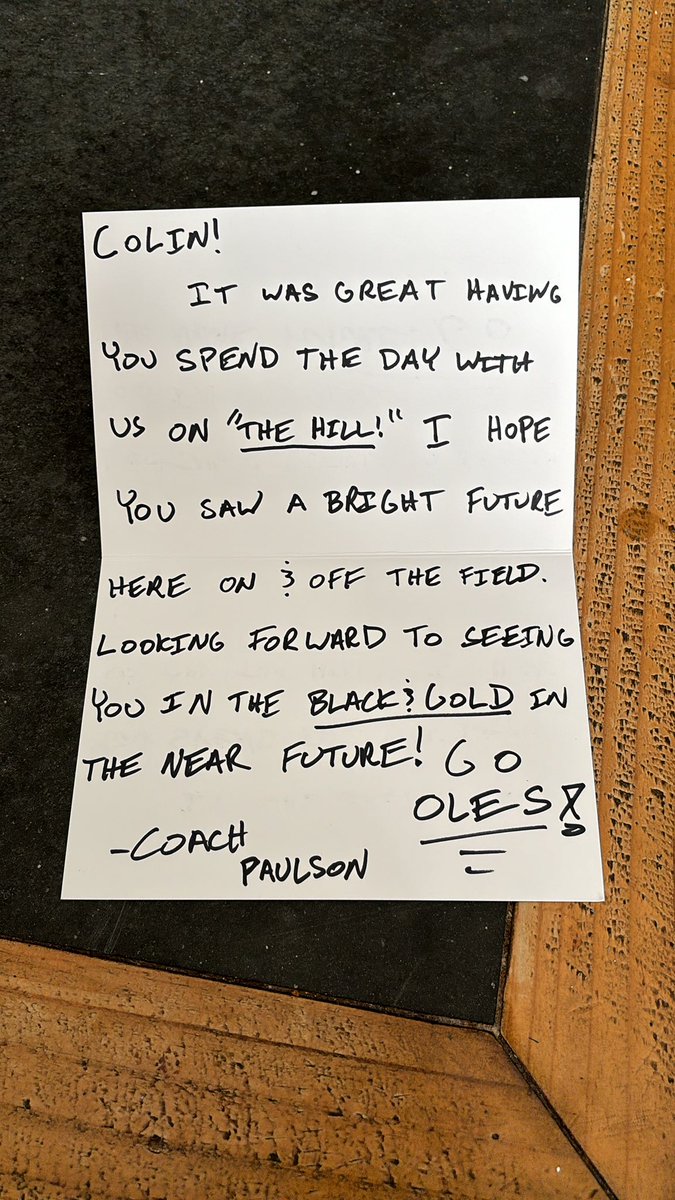 COLIN!
IT WAS GREAT HAVING
YOU SPEND THE DAY WITH
US ON "THE HILL!" I HOPE
YOU SAW A BRIGHT FUTURE
HERE ON & OFF THE FIELD.
LOOKING FORWARD TO SEEING
YOU IN THE BLACK & GOLD IN
THE NEAR FUTURE! GO
OLES!
-COACH
PAULSON